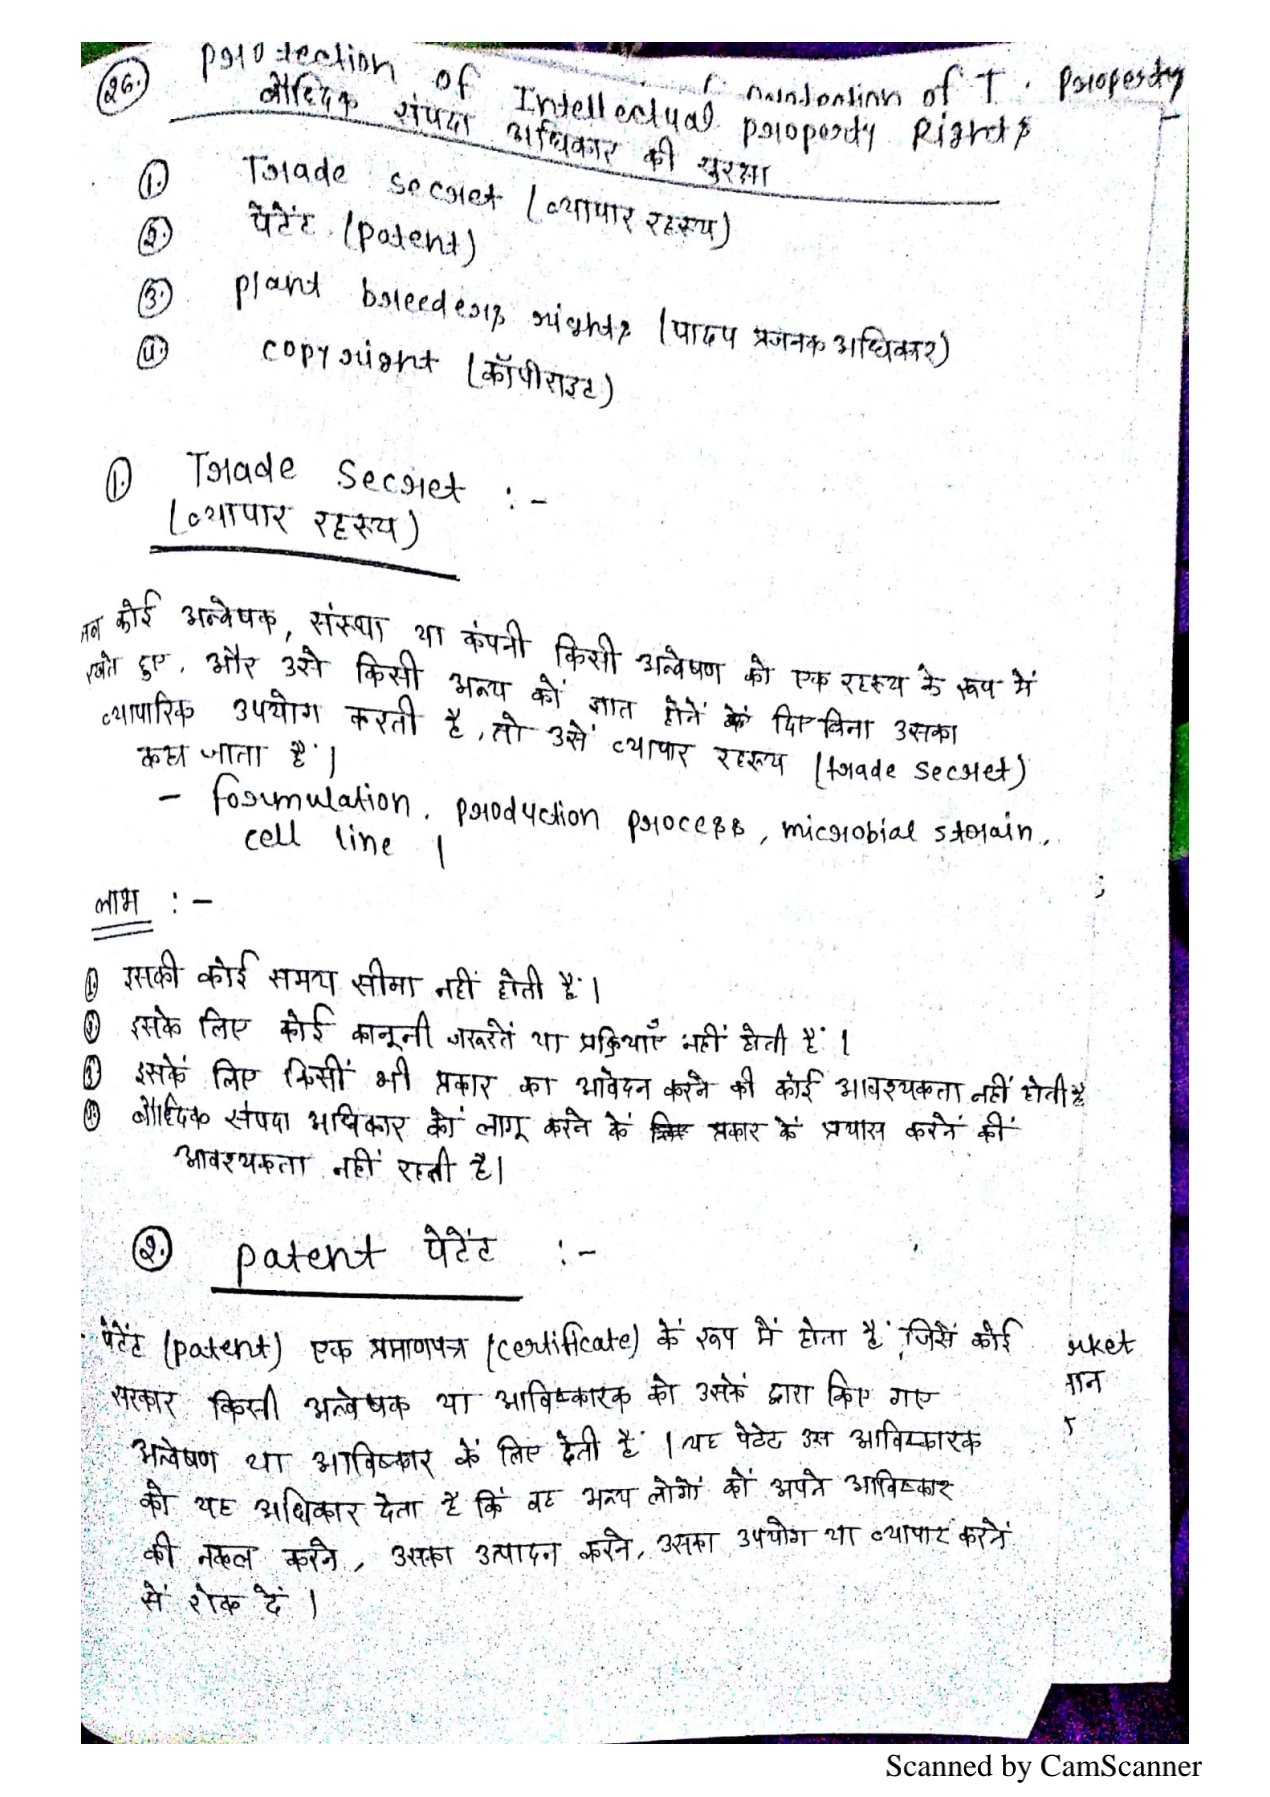 26. Protection of Intellectual property Rights
of I. Property
बौध्दिक संपदा अधिकार की सुरक्षा
1. Trade secret (व्यापार रहस्य)
2. पेटेंट (Patent)
3. plant breeders rights (पादप प्रजनक अधिकार)
4. copyright (कॉपीराइट)
1. Trade Secret :-
(व्यापार रहस्य)
जब कोई अन्वेषक, संस्था या कंपनी किसी अन्वेषण को एक रहस्य के रूप में
रखते हुए, और उसे किसी अन्य को ज्ञात होनें दिए बिना उसका
व्यापारिक उपयोग करती है, तो उसें व्यापार रहस्य (trade secret)
कहा जाता है।
- formulation, production process, microbial strain,
cell line।
लाभ :-
1. इसकी कोई समय सीमा नहीं होती है।
2. इसके लिए कोई कानूनी जरूरतें या प्रक्रियाएँ नहीं होती है।
3. इसकें लिए किसीं भी प्रकार का आवेदन करने की कोई आवश्यकता नहीं होती है
4. बौध्दिक संपदा अधिकार कों लागू करने कें प्रकार कें प्रयास करनें कीं
आवश्यकता नहीं रहती है।
2. patent पेटेंट :-
पेटेंट (patent) एक प्रमाणपत्र (certificate) कें रूप में होता है, जिसें कोई
सरकार किसी अन्वेषक या आविष्कारक को उसकें द्वारा किए गए
अन्वेषण या आविष्कार कें लिए देती है। यह पेटेंट उस आविष्कारक
को यह अधिकार देता है कि वह अन्य लोगों कों अपने आविष्कार
की नकल करने, उसका उत्पादन करने, उसका उपयोग या व्यापार करनें
सें रोक दें।
rket
Scanned by CamScanner